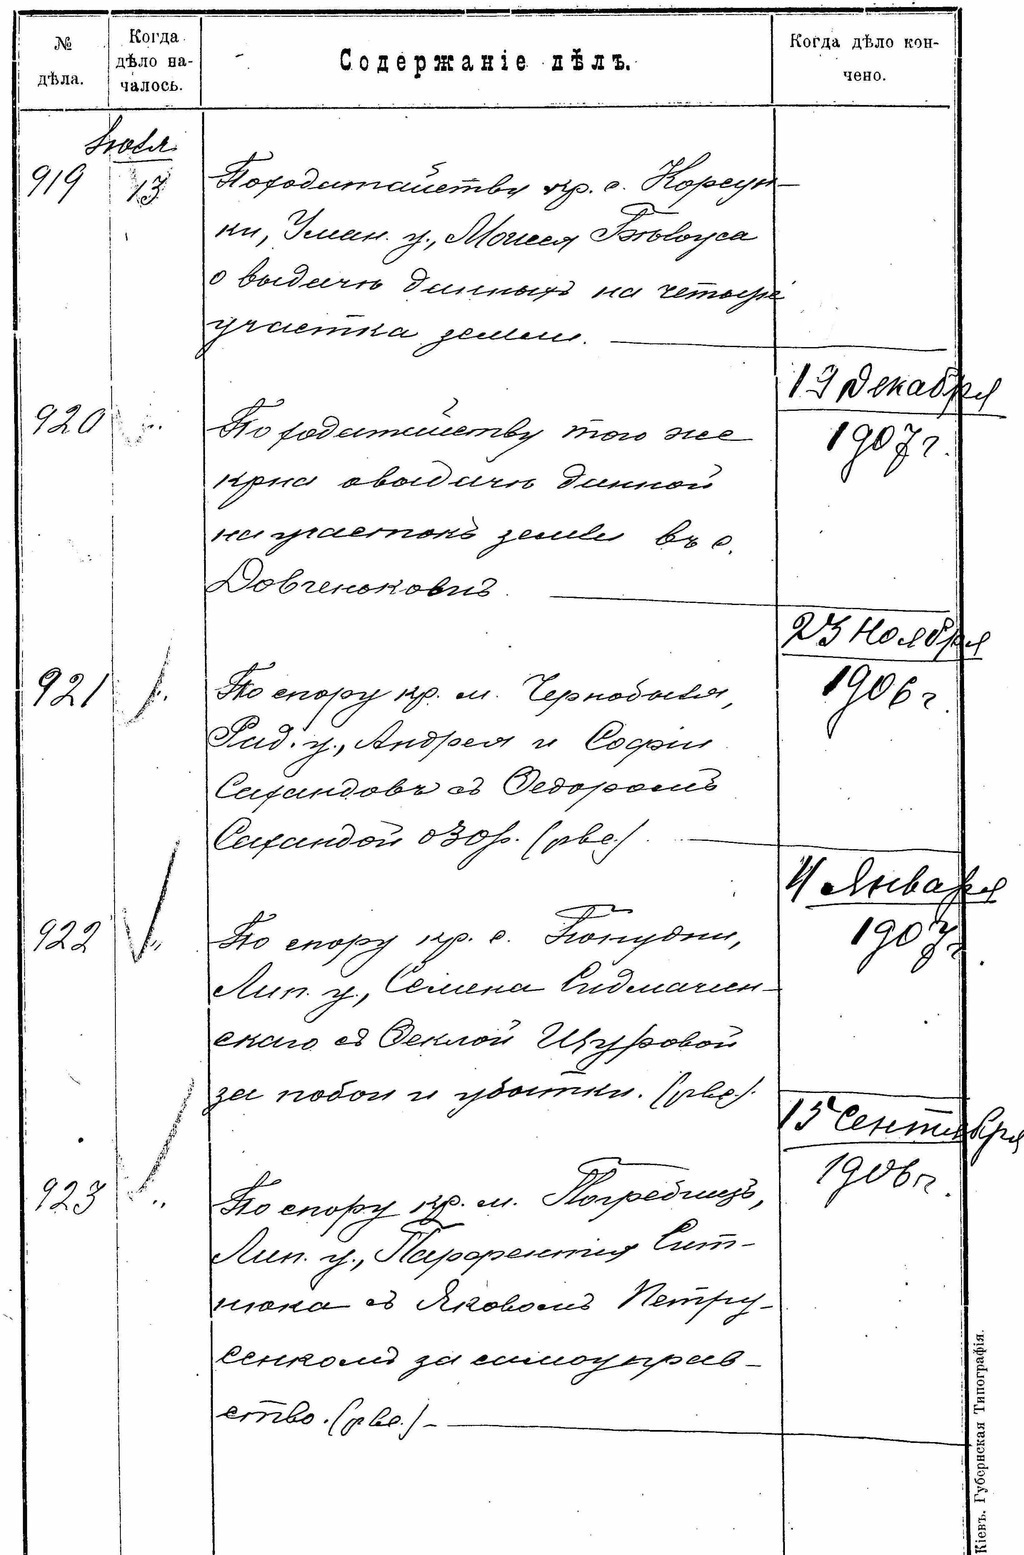 № дѣла.
Когда дѣло началось.
Содержаніе дѣлъ.
Когда дѣло кончено.
Іюля
919
13
По ходатайству кр. с. Корсун-
ки, Уман. у., Моисея Бѣлоуса
о выдачѣ данныхъ на четыре
участка земли.
19 Декабря
1907 г.
920
„
По ходатайству того же
крна о выдачѣ данной
на участокъ земли въ с.
23 Ноября
1906 г.
921
„
По спору кр. м. Чернобыля,
Рад. у., Андрея и Софіи
Сахандовъ съ Ѳедоромъ
Сахандой о 30 р. (рве.)
4 Января
1907 г.
922
„
По спору кр. с.
Лип. у., Семена
скаго съ Ѳеклой Щуровой
за побои и убытки. (рве.)
15 Сентября
1906 г.
923
„
По спору кр. м. Погребищъ,
Лип. у., Парфентія Сит-
нюка съ Яковомъ Петру-
сенкомъ за самоуправ-
ство. (рве.)
Кіевъ. Губернская Типографія.